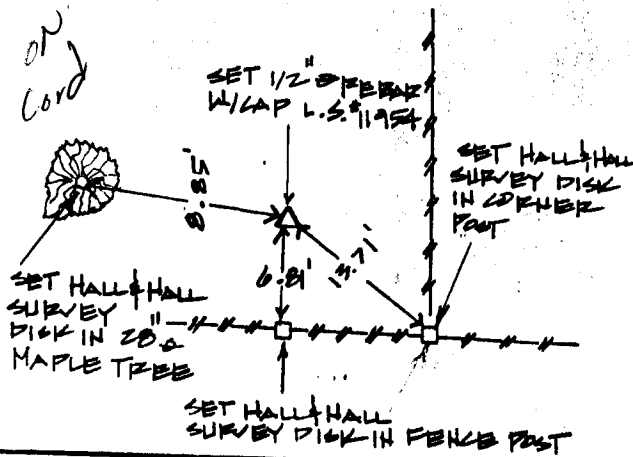 on
Cord
SET 1/2" Ø REBAR
W/CAP L.S.# 11954
SET HALL & HALL
SURVEY DISK
IN CORNER
POST
8.85'
6.81'
SET HALL & HALL
SURVEY
DISK IN 28" Ø
MAPLE TREE
SET HALL & HALL
SURVEY DISK IN FENCE POST